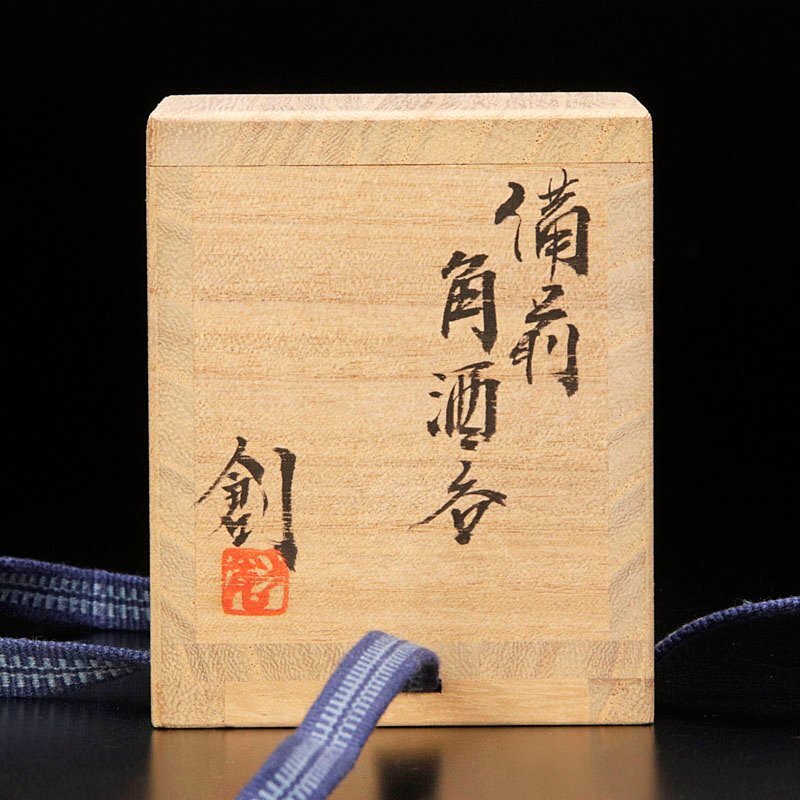 備前
角酒呑
創